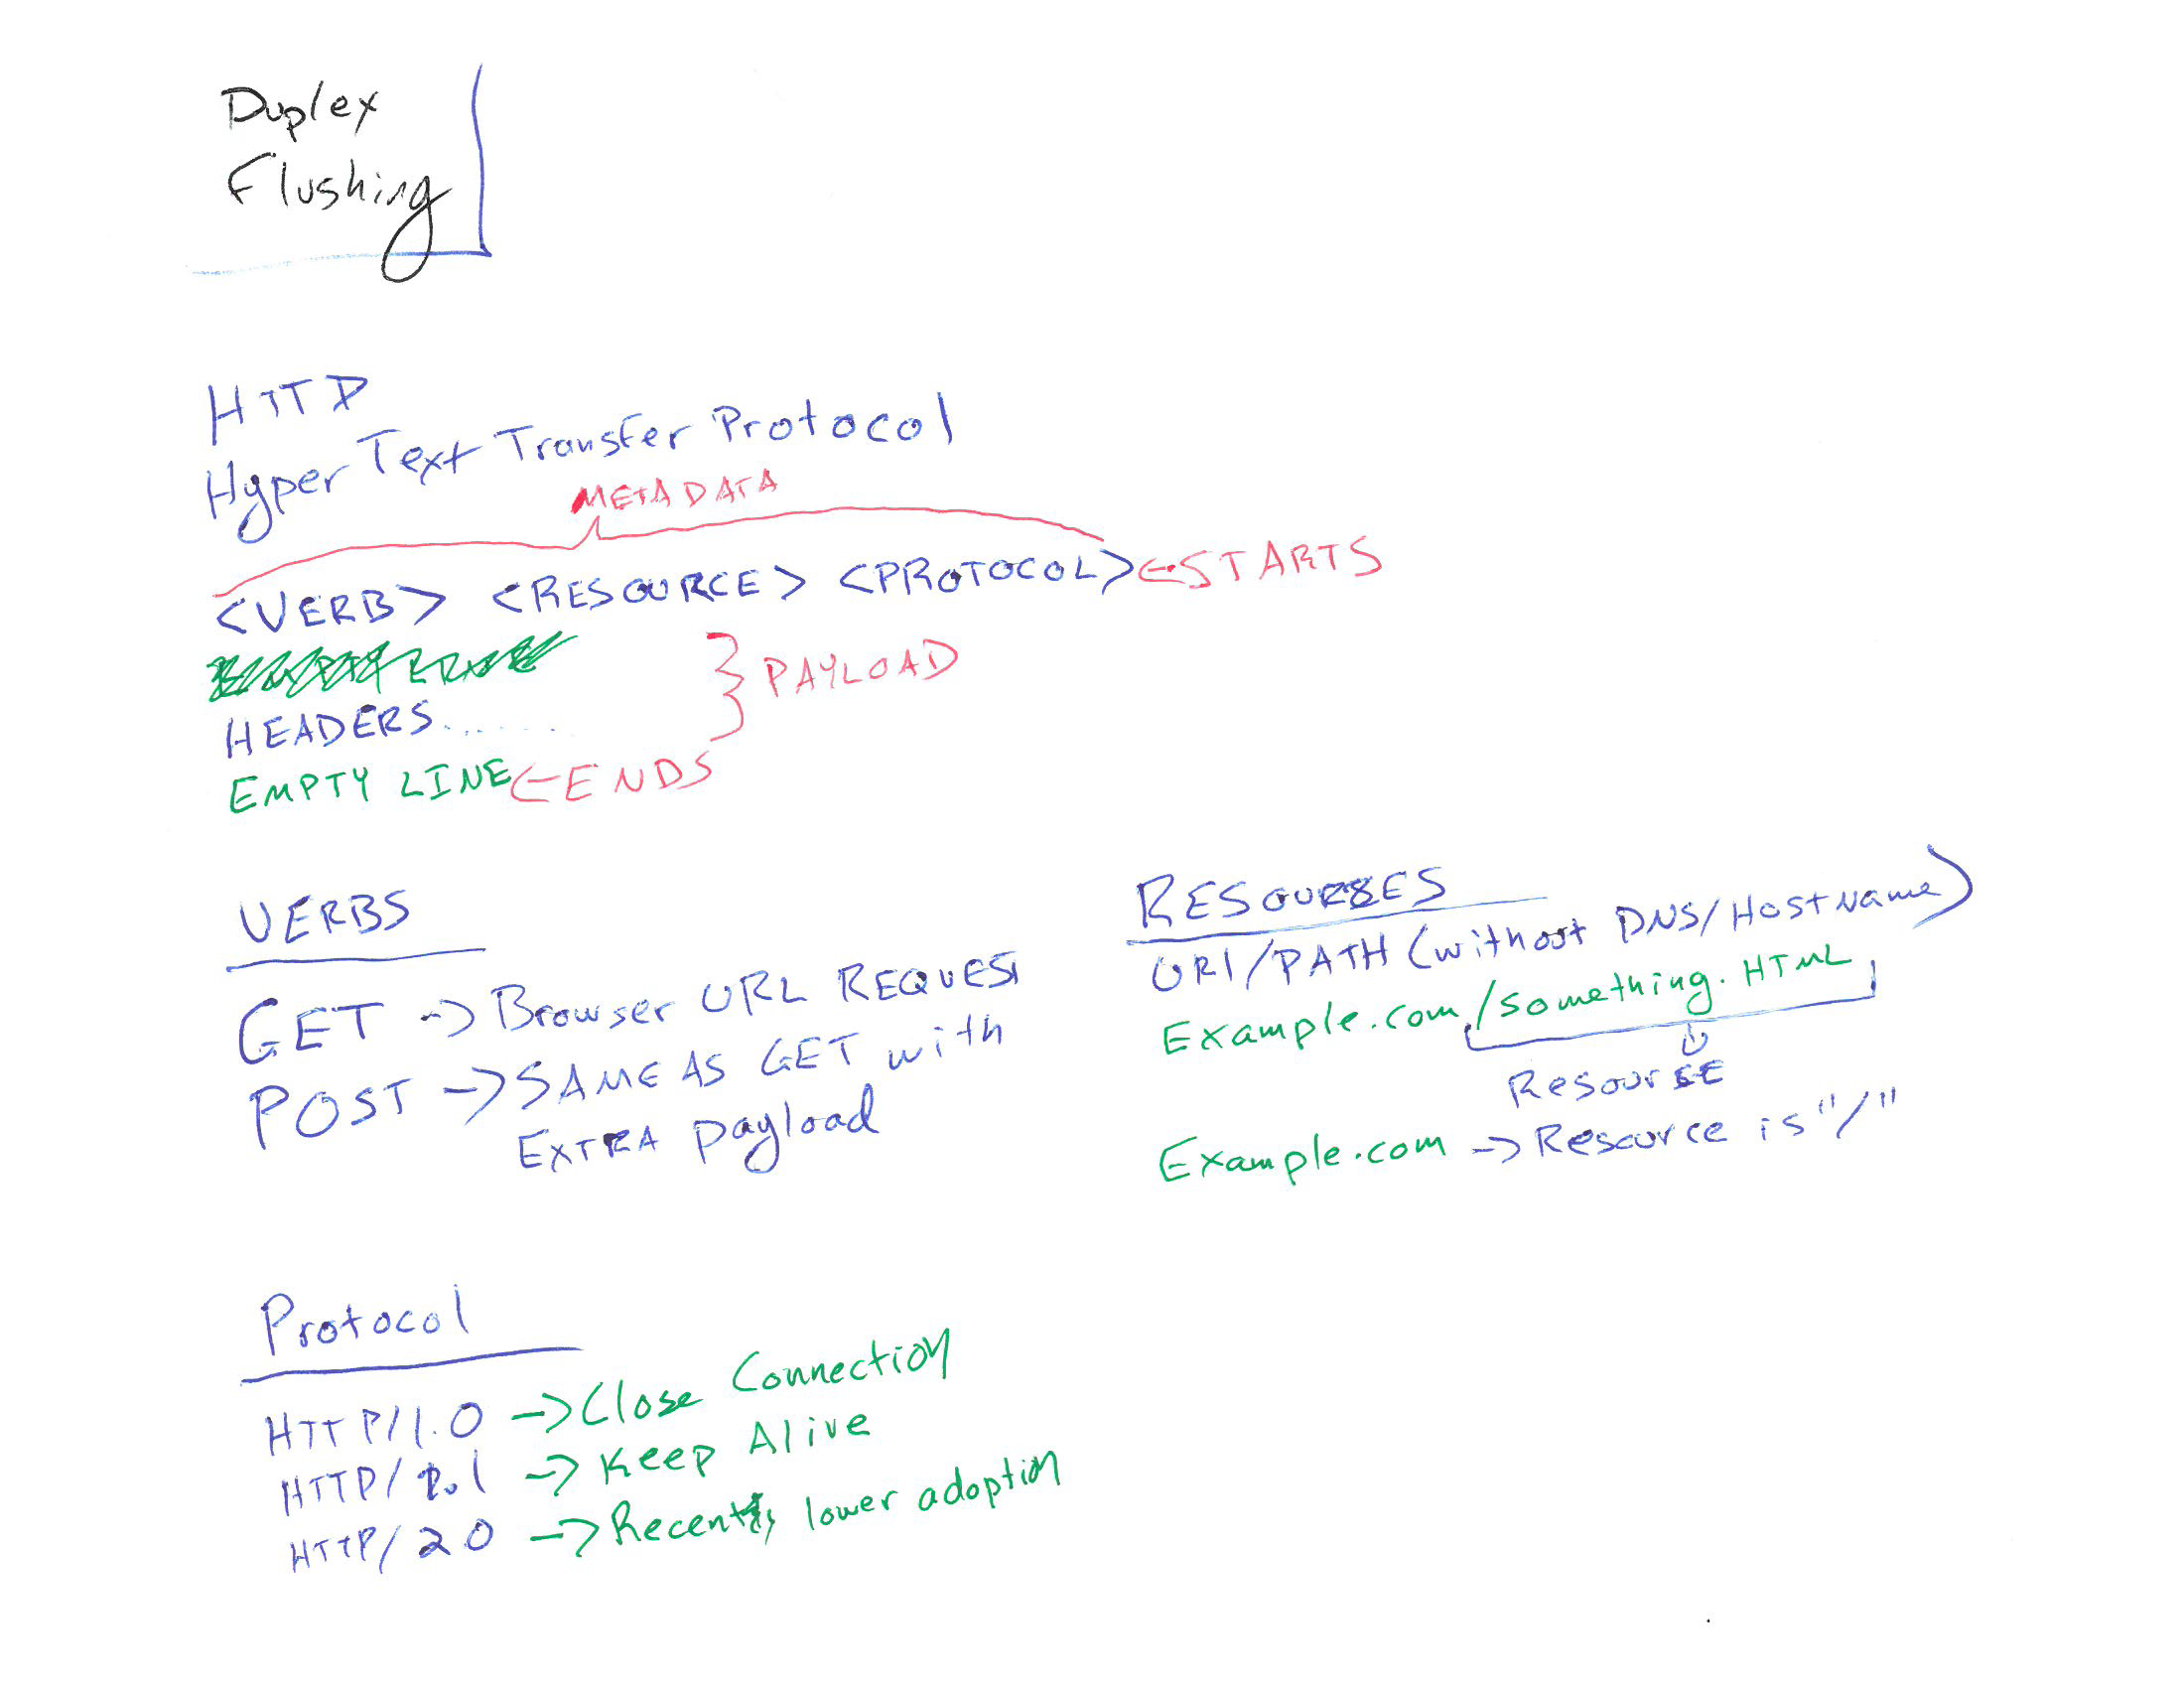 Duplex
Flushing
HTTP
Hyper Text Transfer Protocol
METADATA
<VERB> <RESOURCE> <PROTOCOL> <- STARTS
EMPTY LINE
PAYLOAD
HEADERS......
EMPTY LINE <- ENDS
VERBS
GET -> Browser URL REQUEST
POST -> SAME AS GET with
EXTRA payload
RESOURSES
URI/PATH (without DNS/HostName)
Example.com/something.HTML
ResoursE
Example.com -> Resource is "/"
Protocol
HTTP/1.0 -> Close Connection
HTTP/1.1 -> Keep Alive
HTTP/2.0 -> Recent, lower adoption